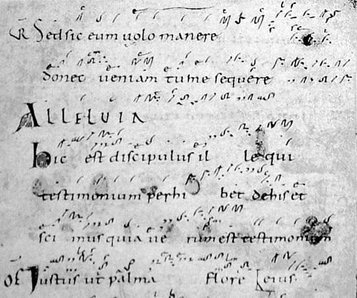 GR Sed sic eum volo manere
donec veniam tu me sequere
ALLELUIA
hic est discipulus il le qui
testimonium perhi bet de his et
sci mus quia ve rum est testimonium
OF Justus ut palma flore